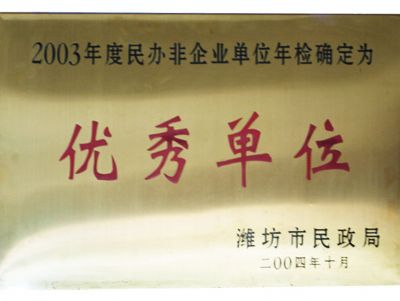 2003年度民办非企业单位年检确定为
优秀单位
潍坊市民政局
二〇〇四年十月